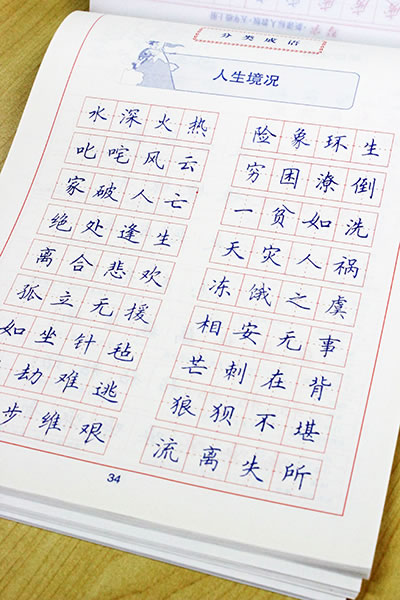 分类成语
人生境况
水深火热
叱咤风云
家破人亡
绝处逢生
离合悲欢
孤立无援
如坐针毡
劫难逃
步维艰
险象环生
穷困潦倒
一贫如洗
天灾人祸
冻饿之虞
相安无事
芒刺在背
狼狈不堪
流离失所
34